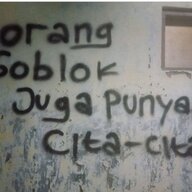 orang
Goblok
Juga punya
Cita-cita